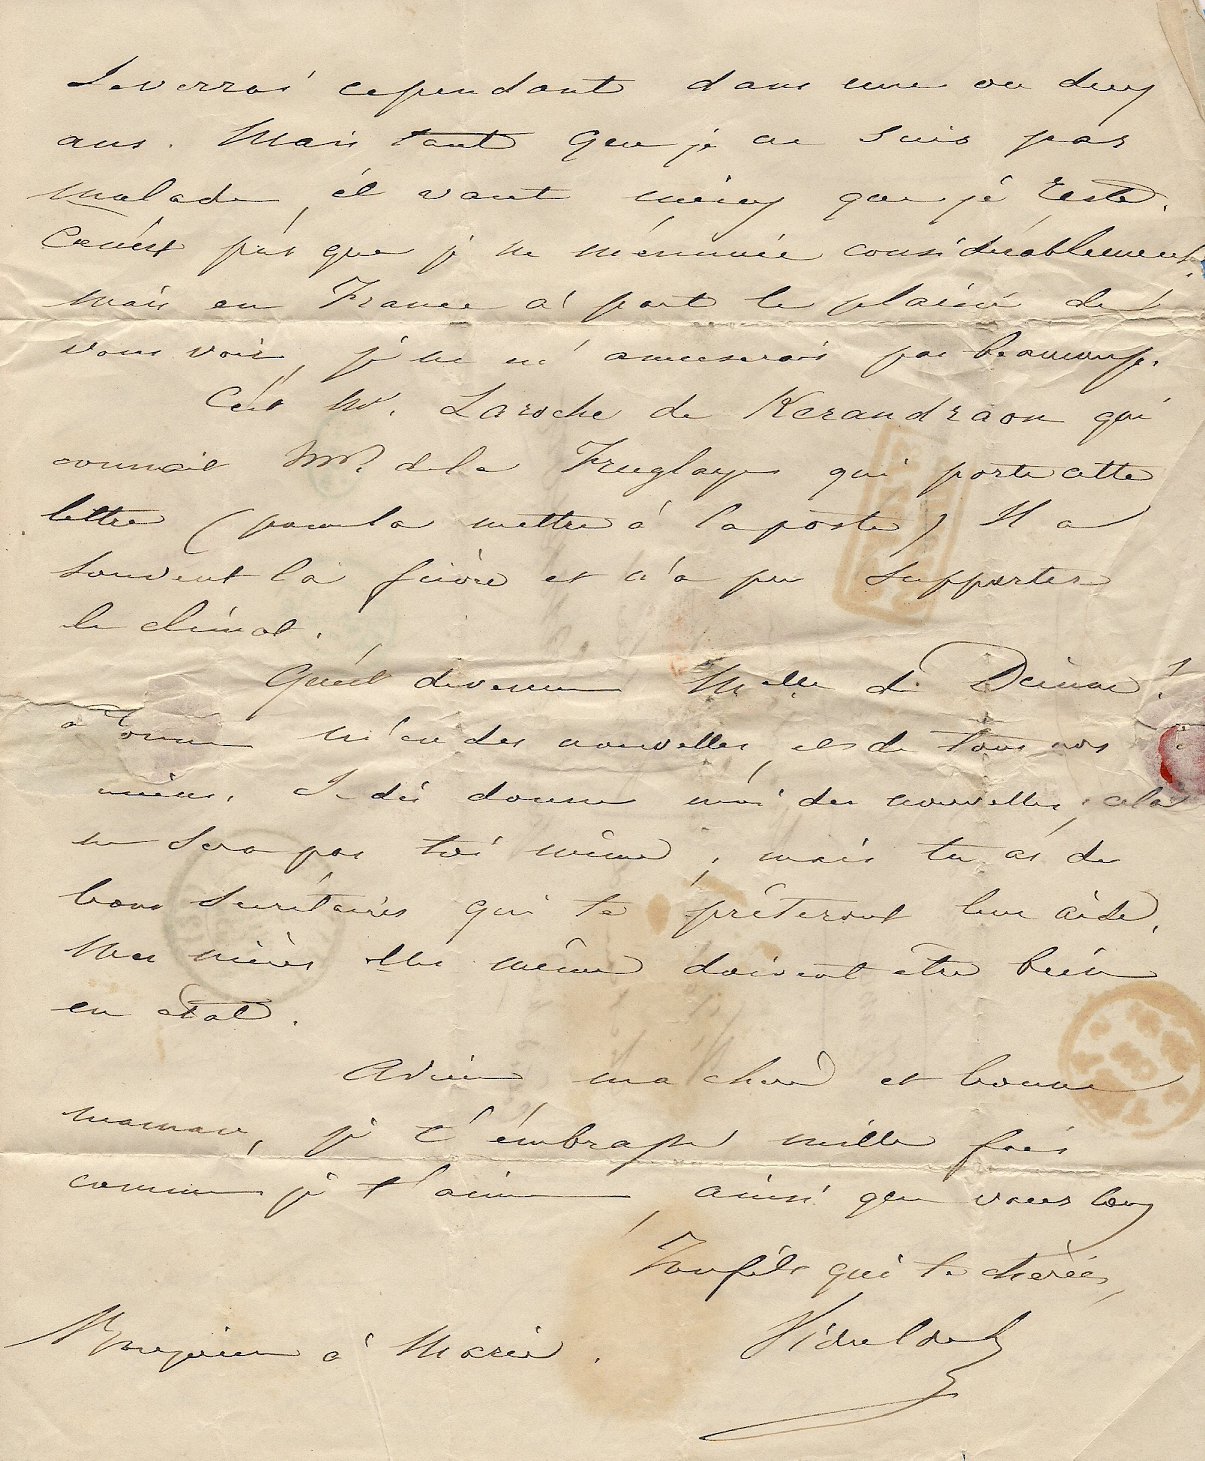 verrai cependant dans une ou deux
ans. Mais tant que je ne suis pas
malade, il vaut mieux que je reste.
Ce n'est pas que je ne m'ennuie considérablement,
mais en France à part le plaisir de
vous voir, je ne m'amuserais pas beaucoup.
C'est Mr. Laroche de Kerandraon qui
connait Mr. de la Fruglaye qui porte cette
lettre (pour la mettre à la poste) Il a
souvent la fièvre et n'a pu supporter
le climat.
Qu'est devenue Melle de ?
donne m'en des nouvelles, et de tous nos
amis. donne moi des nouvelles, cela
ne sera pas toi même, mais tu as de
bons secrétaires qui te prêteront leur aide.
Mes nièces elles même doivent être bien
en état.
Adieu ma chère et bonne
maman, je t'embrasse mille fois
comme je t'aime, ainsi que vous tous
Ton fils qui te chérit,
à Marie.